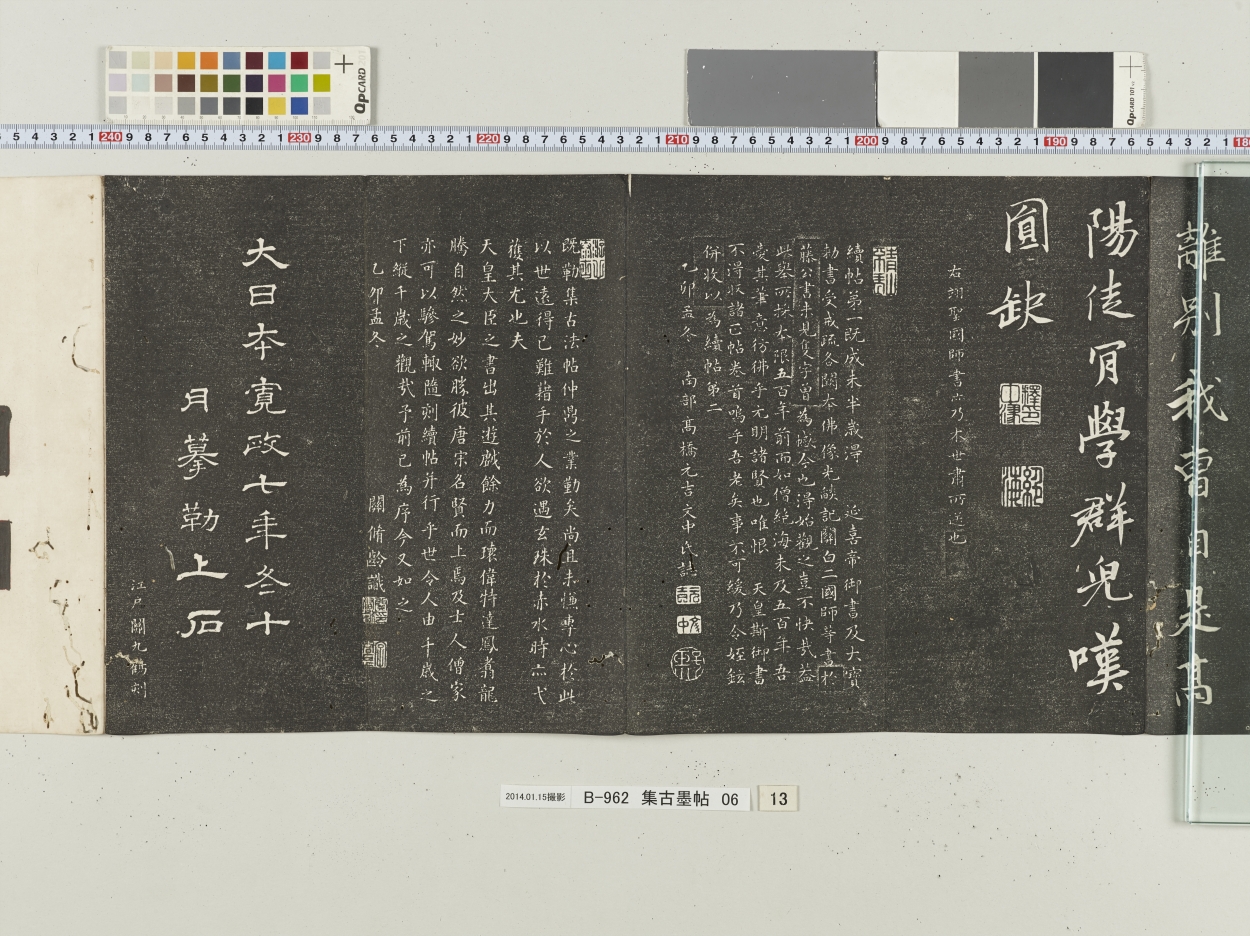 離別我曹自是高
陽徒冐學群兒嘆
圓缺
右翊聖國師書六乃木世肅所送也
續帖第一既成未半歳淂 延喜帝御書及大寶
勅書受戒疏各闕本佛像光皷記關白二國師等書於
藤公書未見隻字曽為憾今也淂始觀之豈不快哉益
不淂収諸正帖卷首嗚乎吾老矣事不可緩乃令姪鉉
併收以為續帖第二
乙卯孟冬 南部髙橋元吉文中氏識
既勒集古法帖仲禹之業勤矣尚且未慊専心於此
以世遠得已難藉手於人欲遇玄珠於赤水時亦弋
獲其尤也夫
天皇大臣之書出其遊戯餘力而瓌偉特達鳳翥龍
騰自然之妙欲勝彼唐宋名賢而上焉及士人僧家
亦可以驂駕輙隨刻續帖并行乎世令人由千歳之
下縦千歳之觀哉予前已為序今又如之
乙卯孟冬 關脩齡識
大日本寛政七年冬十
月摹勒上石
江戸關九鶴刻
2014.01.15撮影 B-962 集古墨帖 06 13
QpCARD
QpCARD 101
5 4 3 2 1 240 9 8 7 6 5 4 3 2 1 230 9 8 7 6 5 4 3 2 1 220 9 8 7 6 5 4 3 2 1 210 9 8 7 6 5 4 3 2 1 200 9 8 7 6 5 4 3 2 1 190 9 8 7 6 5 4 3 2 1